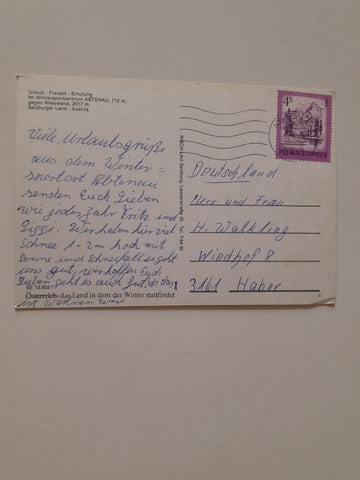 Urlaub · Freizeit · Erholung
im Wintersportzentrum ABTENAU, 712 m,
gegen Wieswand, 2017 m,
Salzburger Land · Austria
Viele Urlaubsgrüße
aus dem Winter-
sportort Abtenau
senden Euch Lieben
wie jedes Jahr Fritz und
Wir haben hier viel
Schnee 1-2m hoch mit
Sonne und Schneefall es geht
uns gut, wir hoffen Euch
Lieben geht es auch gut,
Österreich - das Land in dem der Winter stattfindet
4S
REPUBLIK ÖSTERREICH
Deutschland
Herr und Frau
H. Walkling
Wiedhof 8
3161 Haber